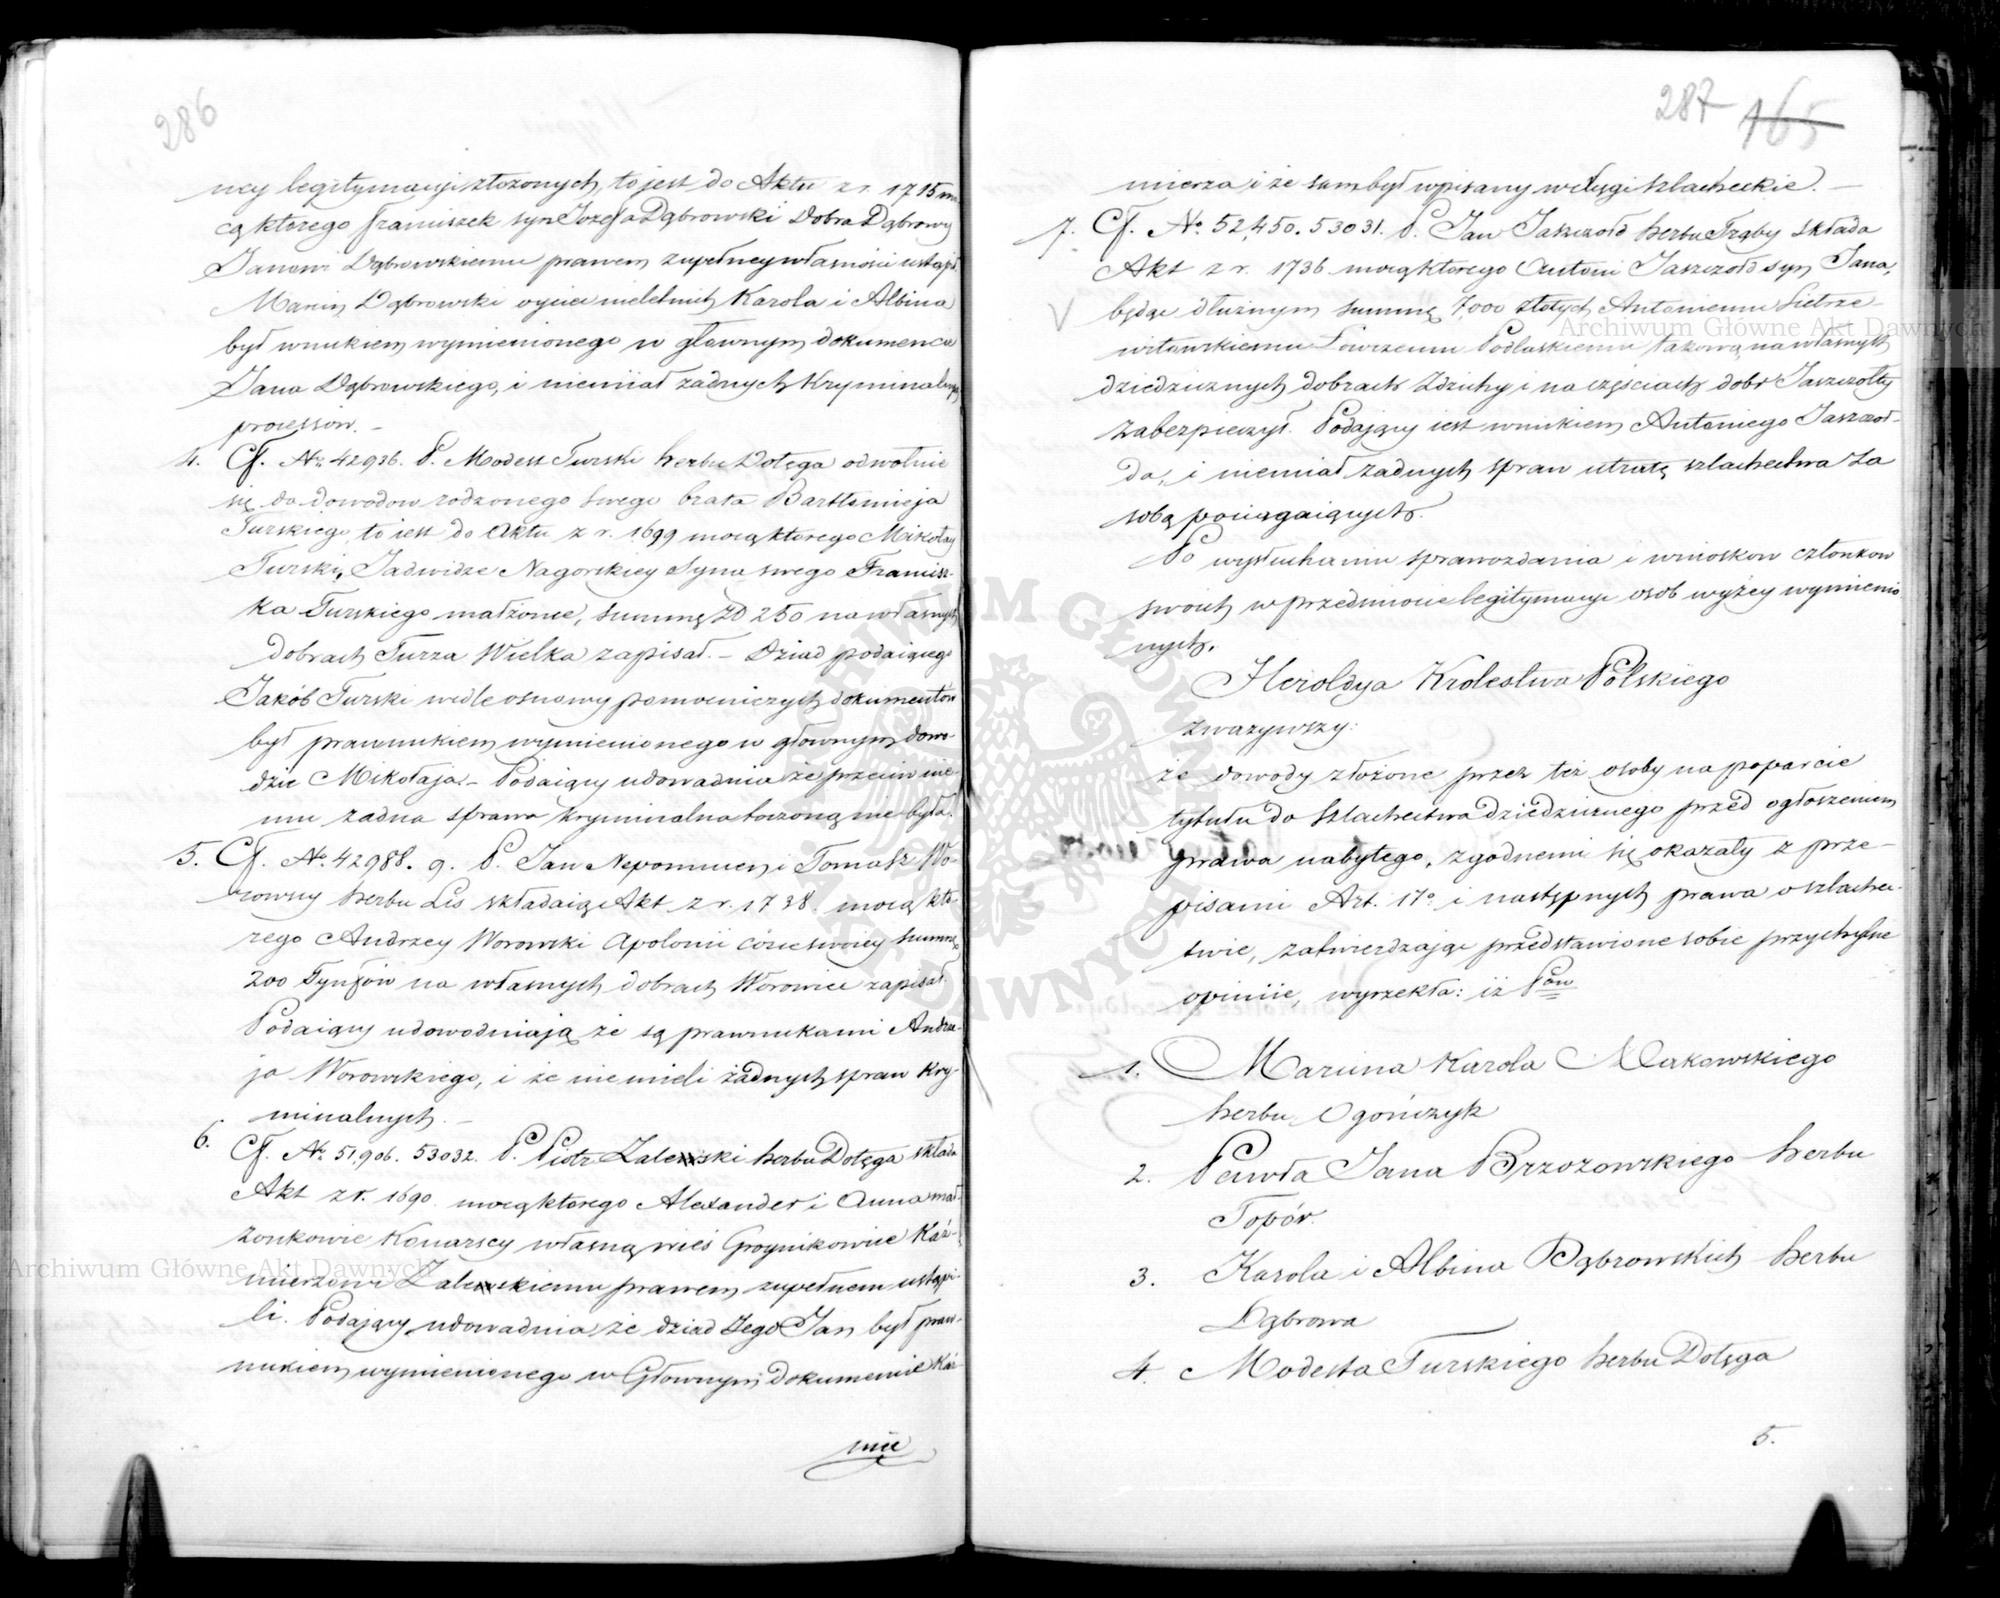 286
ney legitymacyi złożonych, to jest do Aktu z r. 1715 mo
cą ktorego Franciszek syn Jozefa Dąbrowski Dobra Dąbrowy
Janowi Dąbrowskiemu prawem zupełney własności ustąpił.
Marcin Dąbrowski oyciec nieletnich Karola i Albina
był wnukiem wymienionego w głownym dokumencie
Jana Dąbrowskiego, i niemiał żadnych Kryminalnych
processow. –
4. Cf. No 42936. P. Modest Turski herbu Dołęga odwołuie
się do dowodow rodzonego swego brata Bartłomieja
Turskiego to iest do Aktu z r. 1699 mocą ktorego Mikołay
Turski, Jadwidze Nagorskiey Syna swego Francisz-
ka Turskiego małżonce, summę ZD 250 na własnych
dobrach Turza Wielka zapisał. – Dziad podaiącego
Jakób Turski wedle osnowy pomocniczych dokumentów
był prawnukiem wymienionego w głownym dowo-
dzie Mikołaja. – Podaiący udowadnia że przeciw nie-
mu żadna sprawa kryminalna toczoną nie była.
5. Cf. No 42988. 9. P. Jan Nepomucen i Tomasz Wo-
rowscy herbu Lis składaią Akt z r. 1738. mocą kto-
rego Andrzey Worowski Apolonii córce swoiey summę
200 Tynfów na własnych dobrach Worowice zapisał.
Podaiący udowodniają że są prawnukami Andrze-
ja Worowskiego, i że nie mieli żadnych spraw Kry-
minalnych. –
6. Cf. No 51,906. 53032. P. Piotr Zalewski herbu Dołęga składa
Akt z r. 1690. mocą ktorego Alexander i Anna mał-
żonkowie Konarscy własną wieś Groynikowice Kaź-
mierzowi Zalewskiemu prawem zupełnem ustąpi-
li. Podający udowadnia że dziad Jego Jan był praw-
nukiem wymienionego w Głownym Dokumencie Kaź-
mie
287 165
mierza i że sam był wpisany w xięgi szlacheckie. –
7. Cf. No 52,450. 53031. P. Jan Jaszczołd herbu Trąby składa
Akt z r. 1736. mocą ktorego Antoni Jaszczołd syn Jana,
będąc dłużnym summę 7,000 złotych Antoniemu Cietrze-
witowskiemu Łowczemu Podlaskiemu takową na własnych
dziedzicznych dobrach Zdzichy i na częściach dobr Jaszczołty
zabezpieczył. Podający iest wnukiem Antoniego Jaszczoł-
da, i niemiał żadnych spraw utratę szlachectwa za
sobą pociągaiących.
Po wysłuchaniu sprawozdania i wnioskow członkow
swoich w przedmiocie legitymacyi osob wyżey wymienio
nych,
Heroldya Krolestwa Polskiego
zważywszy:
że dowody złożone przez też osoby na poparcie
tytułu do Szlachectwa dziedzicznego przed ogłoszeniem
prawa nabytego, zgodnemi się okazały z prze-
pisami Art. 17o i następnych prawa o szlachec-
twie, zatwierdzając przedstawione sobie przychylne
opiniie, wyrzekła: iż Pow
1. Marcina Karola Makowskiego
herbu Ogończyk
2. Pawła Jana Brzozowskiego herbu
Topór.
3. Karola i Albina Dąbrowskich herbu
Dąbrowa
4. Modesta Turskiego herbu Dołęga
5.
Archiwum Główne Akt Dawnych
Archiwum Główne Akt Dawnych
ARCHIWUM GŁÓWNE AKT DAWNYCH